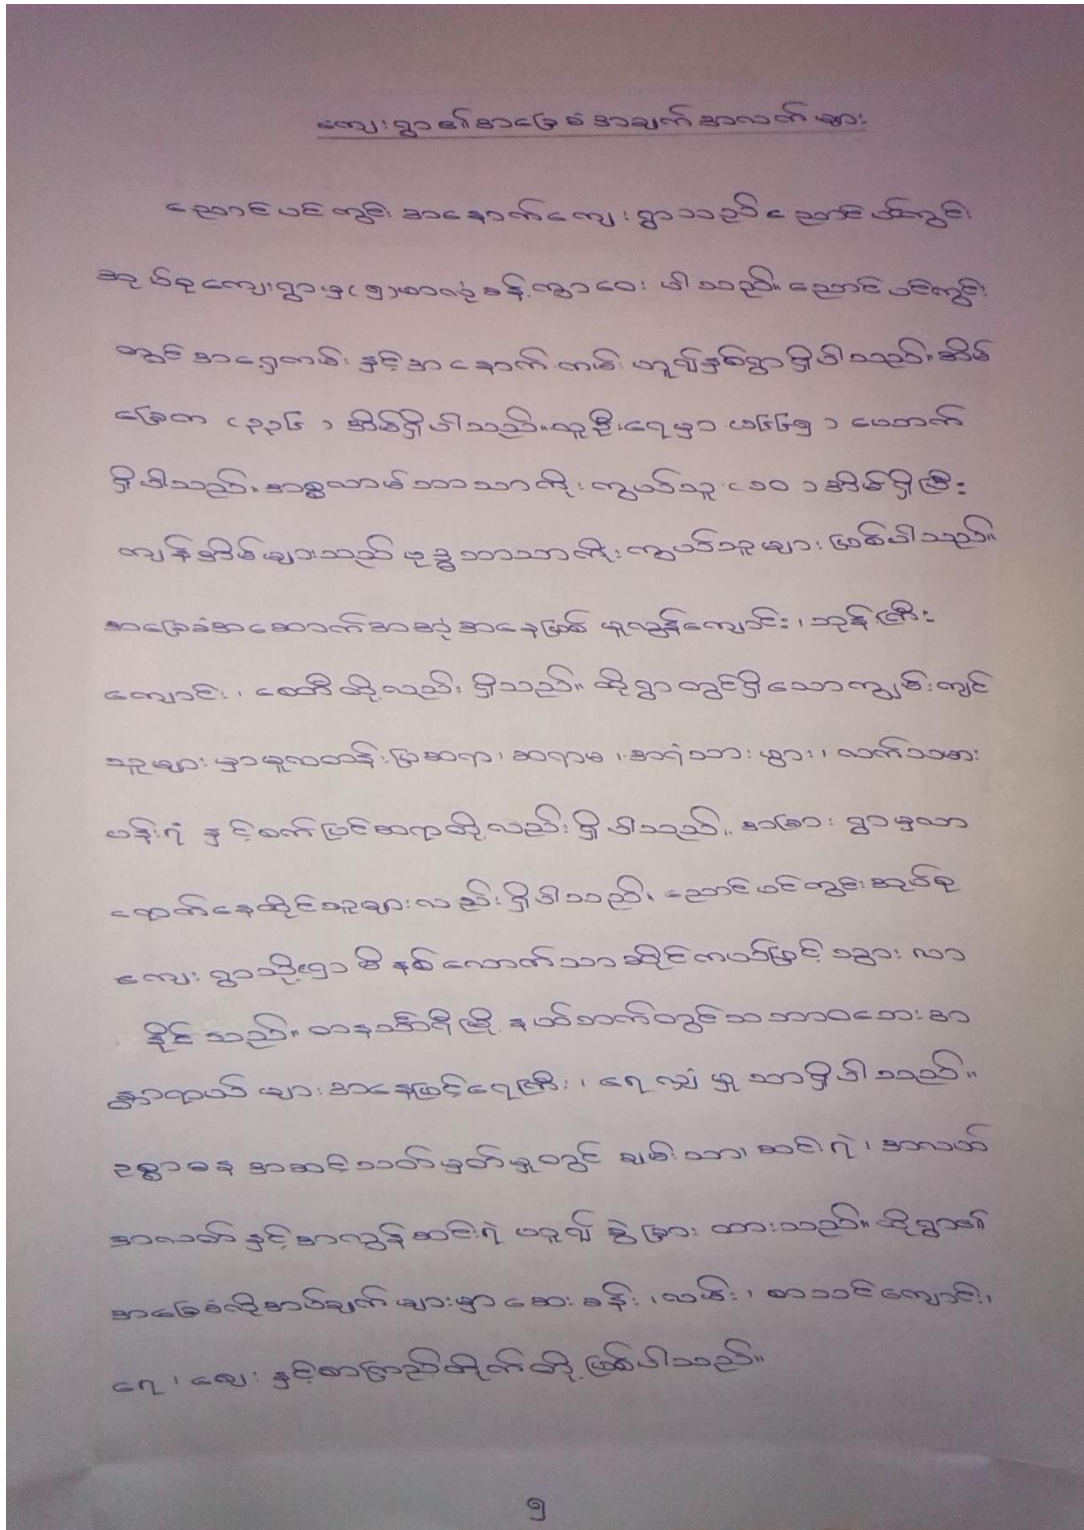 ကျေးရွာ၏အခြေခံအချက်အလက်များ
ညောင်ပင်ကွင်း အနောက်ကျေးရွာသည် ညောင်ပင်ကွင်း
အုပ်စုကျေးရွာမှ (၅)မာလုံခန့် ကွာဝေး ပါသည်။ ညောင်ပင်ကွင်း
တွင် အရှေ့ကမ်း နှင့် အနောက်ကမ်း ဟူ၍ နှစ်ရွာရှိပါသည်။ အိမ်
ခြေက (၃၃၆) အိမ်ရှိပါသည်။ လူဦးရေမှာ ယောက်
ရှိပါသည်။ အစ္စလာမ်ဘာသာကိုးကွယ်သူ (၁၀) အိမ်ရှိပြီး
ကျန်အိမ်များသည် ဗုဒ္ဓဘာသာကိုးကွယ်သူများ ဖြစ်ပါသည်။
အခြေခံအဆောက်အအုံအနေဖြစ် မူလွန်ကျောင်း၊ ဘုန်းကြီး
ကျောင်း၊ စေတီ တို့လည်း ရှိသည်။ ထိုရွာတွင်ရှိသော ကျွမ်းကျင်
သူများမှာ မူလတန်းပြဆရာ၊ ဆရာမ၊ အရံသားဖွား၊ လက်သမား
ပန်းရံ နှင့် စက်ပြင်ဆရာတို့လည်း ရှိပါသည်။ အခြားရွာမှလာ
ရောက်နေထိုင်သူများလည်း ရှိပါသည်။ ညောင်ပင်ကွင်းအုပ်စု
ကျေးရွာသို့ မိနစ်လောက်သာ ဆိုင်ကယ်ဖြင့် သွားလာ
နိုင်သည်။ တနင်္သာရီမြို့နယ်ဘက်တွင် သဘာဝဘေးအ
န္တာရာယ်များအနေဖြင့် ရေကြီး၊ ရေလျှံမှုသာရှိပါသည်။
ဥစ္စာဓန အဆင့်သတ်မှတ်မှုတွင် ချမ်းသာ၊ ဆင်းရဲ၊ အလယ်
အလတ် နှင့် အလွန်ဆင်းရဲ ဟူ၍ ခွဲခြားထားသည်။ ထိုရွာ၏
အခြေခံလိုအပ်ချက်များမှာ ဆေးခန်း၊ လမ်း၊ စာသင်ကျောင်း၊
ရေ၊ ဈေး နှင့် စာကြည့်တိုက်တို့ ဖြစ်ပါသည်။
၅